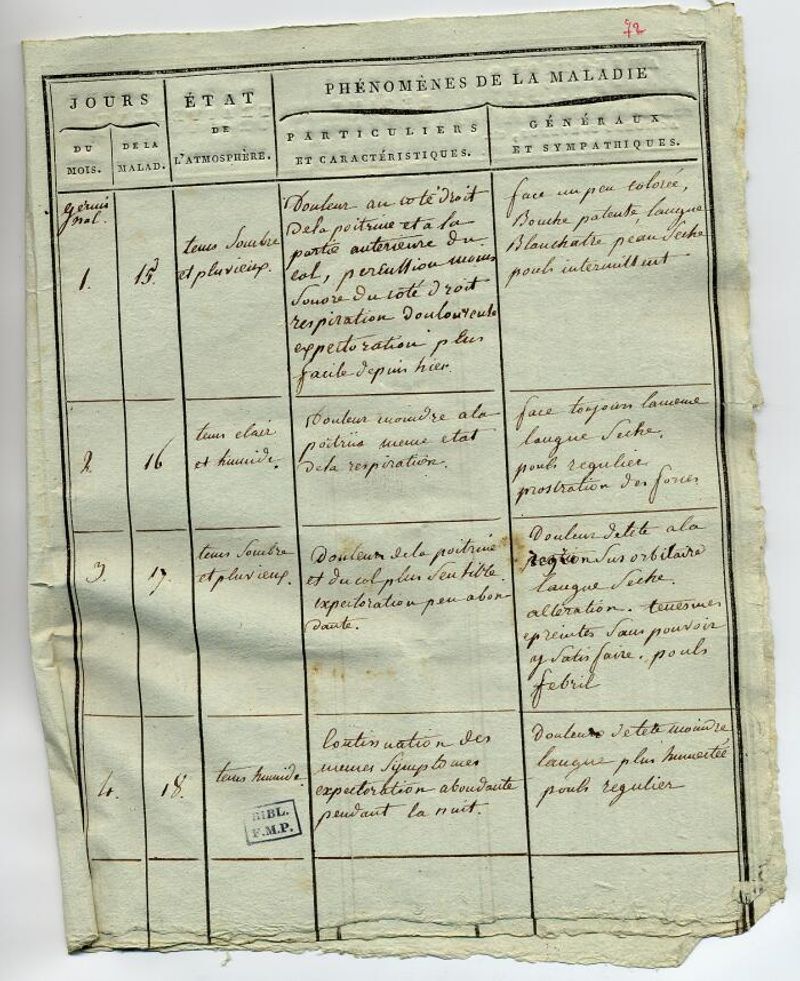 72
JOURS
DU
MOIS.
DE LA
MALAD.
ÉTAT
DE
L'ATMOSPHÈRE.
PHÉNOMÈNES DE LA MALADIE
PARTICULIERS
ET CARACTÉRISTIQUES.
GÉNÉRAUX
ET SYMPATHIQUES.
germi
nal.
1.
15
tems sombre
et pluvieux.
Douleur au coté droit
de la poitrine et a la
partie anterieure du
col, percussion moins
sonore du coté droit
respiration douloureuse
expectoration plus
facile depuis hier.
face un peu colorée,
Bouche pateuse langue
Blanchatre peau seche
pouls intermittent
2.
16
tems clair
et humide.
Douleur moindre a la
poitrine meme etat
de la respiration.
face toujours la meme
langue seche.
pouls regulier
prostration des forces
3.
17.
tems sombre
et pluvieux.
Douleur de la poitrine
et du col plus sensible.
expectoration peu abon-
dante.
Douleur de tete a la
region sus orbitaire
langue seche.
altération. tenesmes
epreintes sans pouvoir
y satisfaire. pouls
febril
4.
18.
tems humide.
Continuation des
memes symptomes
expectoration abondante
pendant la nuit.
Douleur de tete moindre
langue plus humectée
pouls regulier
BIBL.
F.M.P.